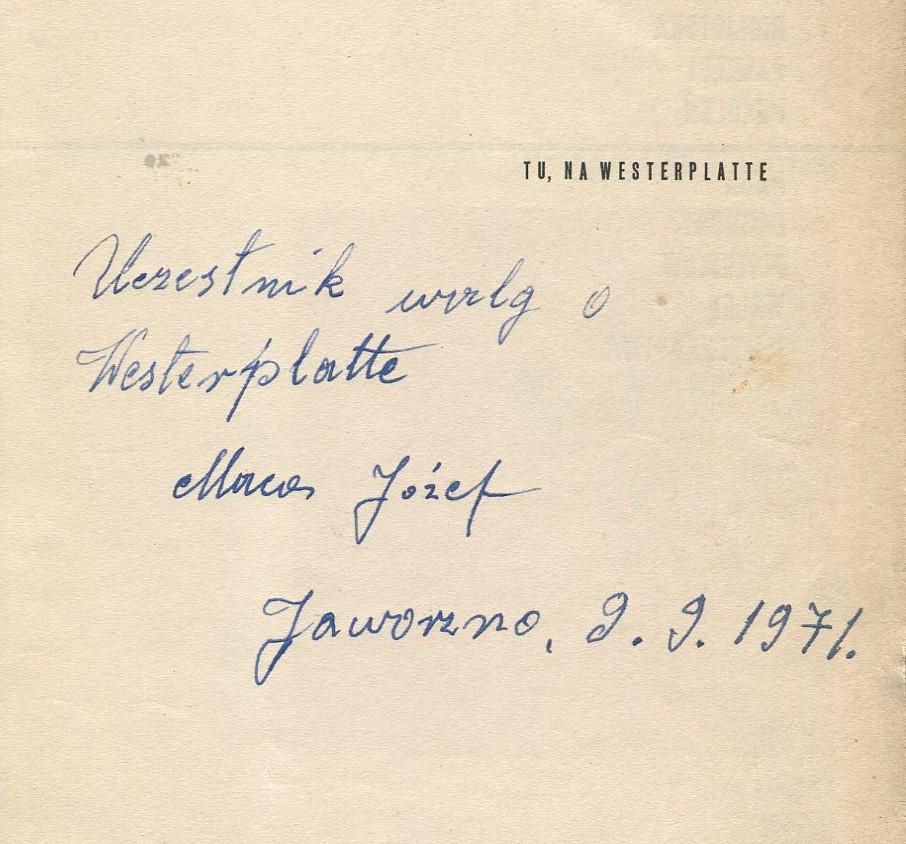 TU, NA WESTERPLATTE
Uczestnik walg o
Westerplatte
Józef
Jaworzno, 9. 9. 1971.